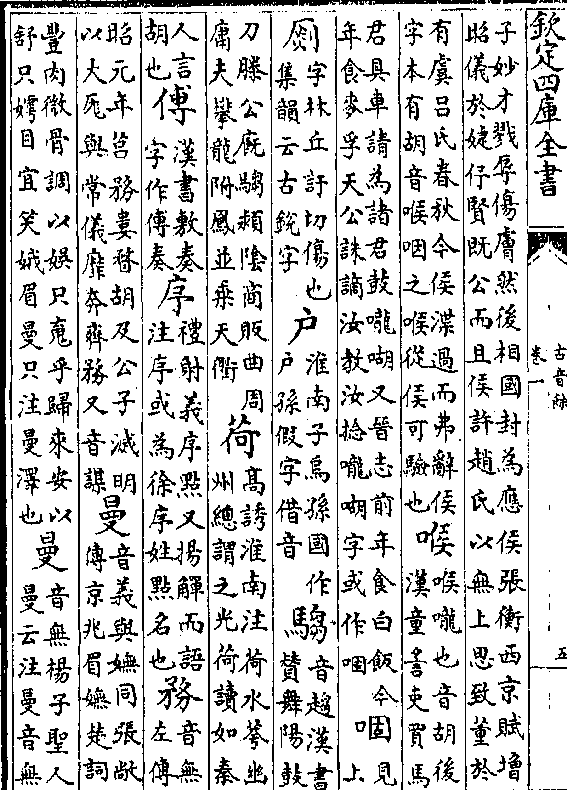 欽定四庫全書
卷一
五
子妙才戮辱傷膚然後相國封為應侯張衡西京賦增
昭儀於婕伃賢既公而且侯許趙氏以無上思致董於
有虞吕氏春秋今侯渫過而弗辭侯
字本有胡音喉咽之喉從侯可驗也
喉
喉嚨也音胡後
漢童謡吏買馬
君具車請為諸君鼓嚨喖又晉志前年食白飯今
年食麥孚天公誅謫汝教汝捻嚨喖字或作咽
見
上
字林丘訏切傷也
集韻云古銳字
戶
淮南子烏孫國作
戶孫假字借音
騶
音趨漢書
贊舞陽鼓
刀滕公廐騶頴陰商販曲周
庸夫攀龍附鳳並乘天衢
荷
高誘淮南注荷水華幽
州總謂之光荷讀如秦
人言
胡也
傅
漢書敷奏
字作傅奏
序
禮射義序㸃又揚觶而語
注序或為徐序姓㸃名也
務
音無
左傳
昭元年莒務婁瞀胡及公子滅明
以大厖與常儀靡奔齊務又音謀
曼
音義與嫵同張敞
傳京兆眉嫵楚詞
豐肉微骨調以娱只䰟乎歸來安以
舒只嫮目宜笑娥眉曼只注曼澤也
曼
音無楊子聖人
曼云注曼音無